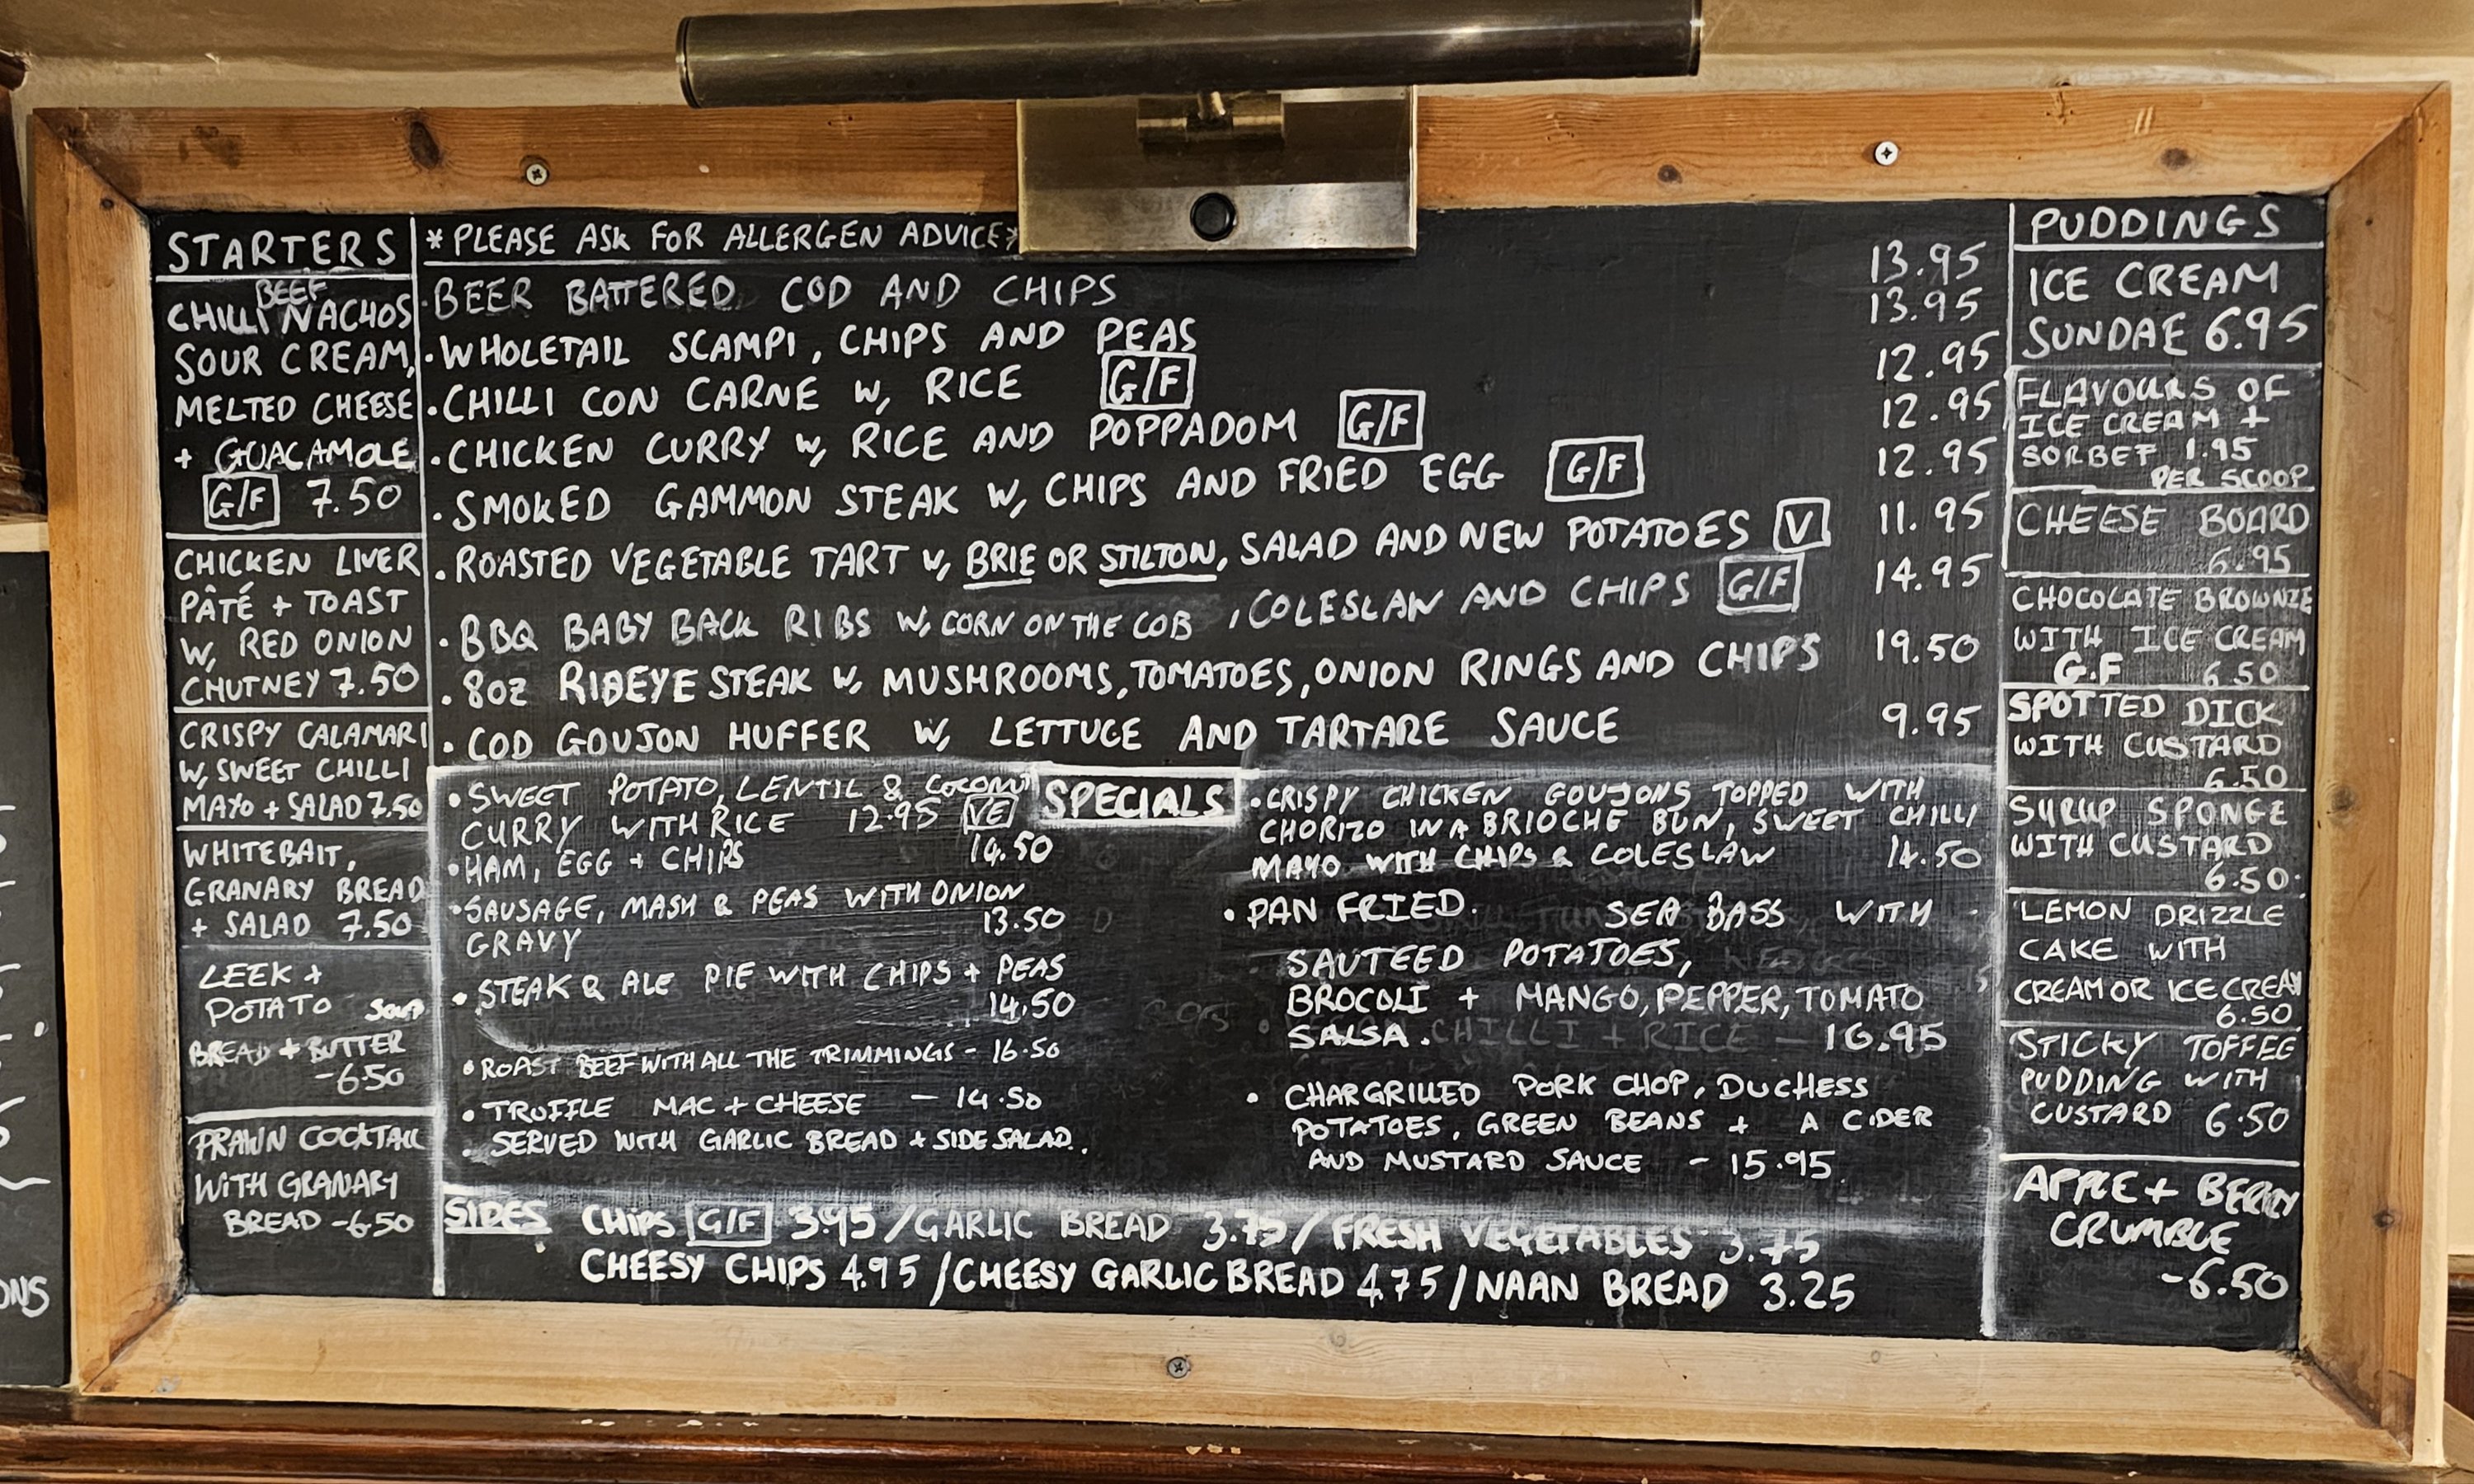 STARTERS
BEEF
CHILLI NACHOS
SOUR CREAM,
MELTED CHEESE
+ GUACAMOLE
G/F 7.50
CHICKEN LIVER
PÂTÉ + TOAST
W, RED ONION
CHUTNEY 7.50
CRISPY CALAMARI
W, SWEET CHILLI
MAYO + SALAD 7.50
WHITEBAIT,
GRANARY BREAD
+ SALAD 7.50
LEEK +
POTATO SOUP
BREAD + BUTTER
-6.50
PRAWN COCKTAIL
WITH GRANARY
BREAD -6.50
*PLEASE ASK FOR ALLERGEN ADVICE*
·BEER BATTERED COD AND CHIPS 13.95
·WHOLETAIL SCAMPI, CHIPS AND PEAS 13.95
·CHILLI CON CARNE W, RICE G/F 12.95
·CHICKEN CURRY W, RICE AND POPPADOM G/F 12.95
·SMOKED GAMMON STEAK W, CHIPS AND FRIED EGG G/F 12.95
·ROASTED VEGETABLE TART W, BRIE OR STILTON, SALAD AND NEW POTATOES V 11.95
·BBQ BABY BACK RIBS W, CORN ON THE COB, COLESLAW AND CHIPS G/F 14.95
·8oz RIBEYE STEAK W, MUSHROOMS, TOMATOES, ONION RINGS AND CHIPS 19.50
·COD GOUJON HUFFER W, LETTUCE AND TARTARE SAUCE 9.95
SPECIALS
·SWEET POTATO, LENTIL & COCONUT
CURRY WITH RICE 12.95 VE
·HAM, EGG + CHIPS 14.50
·SAUSAGE, MASH & PEAS WITH ONION
GRAVY 13.50
·STEAK & ALE PIE WITH CHIPS + PEAS
14.50
·ROAST BEEF WITH ALL THE TRIMMINGS - 16.50
·TRUFFLE MAC + CHEESE - 14.50
·SERVED WITH GARLIC BREAD + SIDE SALAD.
·CRISPY CHICKEN GOUJONS TOPPED WITH
CHORIZO IN A BRIOCHE BUN, SWEET CHILLI
MAYO WITH CHIPS & COLESLAW 14.50
·PAN FRIED. SEA BASS WITH
SAUTEED POTATOES,
BROCOLI + MANGO, PEPPER, TOMATO
SALSA. CHILLI + RICE - 16.95
·CHARGRILLED PORK CHOP, DUCHESS
POTATOES, GREEN BEANS + A CIDER
AND MUSTARD SAUCE - 15.95
SIDES CHIPS G/F 3.95 /GARLIC BREAD 3.75 / FRESH VEGETABLES 3.75
CHEESY CHIPS 4.95 /CHEESY GARLIC BREAD 4.75 / NAAN BREAD 3.25
PUDDINGS
ICE CREAM
SUNDAE 6.95
FLAVOURS OF
ICE CREAM +
SORBET 1.95
PER SCOOP
CHEESE BOARD
6.95
CHOCOLATE BROWNIE
WITH ICE CREAM
G.F 6.50
SPOTTED DICK
WITH CUSTARD
6.50
SYRUP SPONGE
WITH CUSTARD
6.50
LEMON DRIZZLE
CAKE WITH
CREAM OR ICE CREAM
6.50
STICKY TOFFEE
PUDDING WITH
CUSTARD 6.50
APPLE + BERRY
CRUMBLE
-6.50
ONS